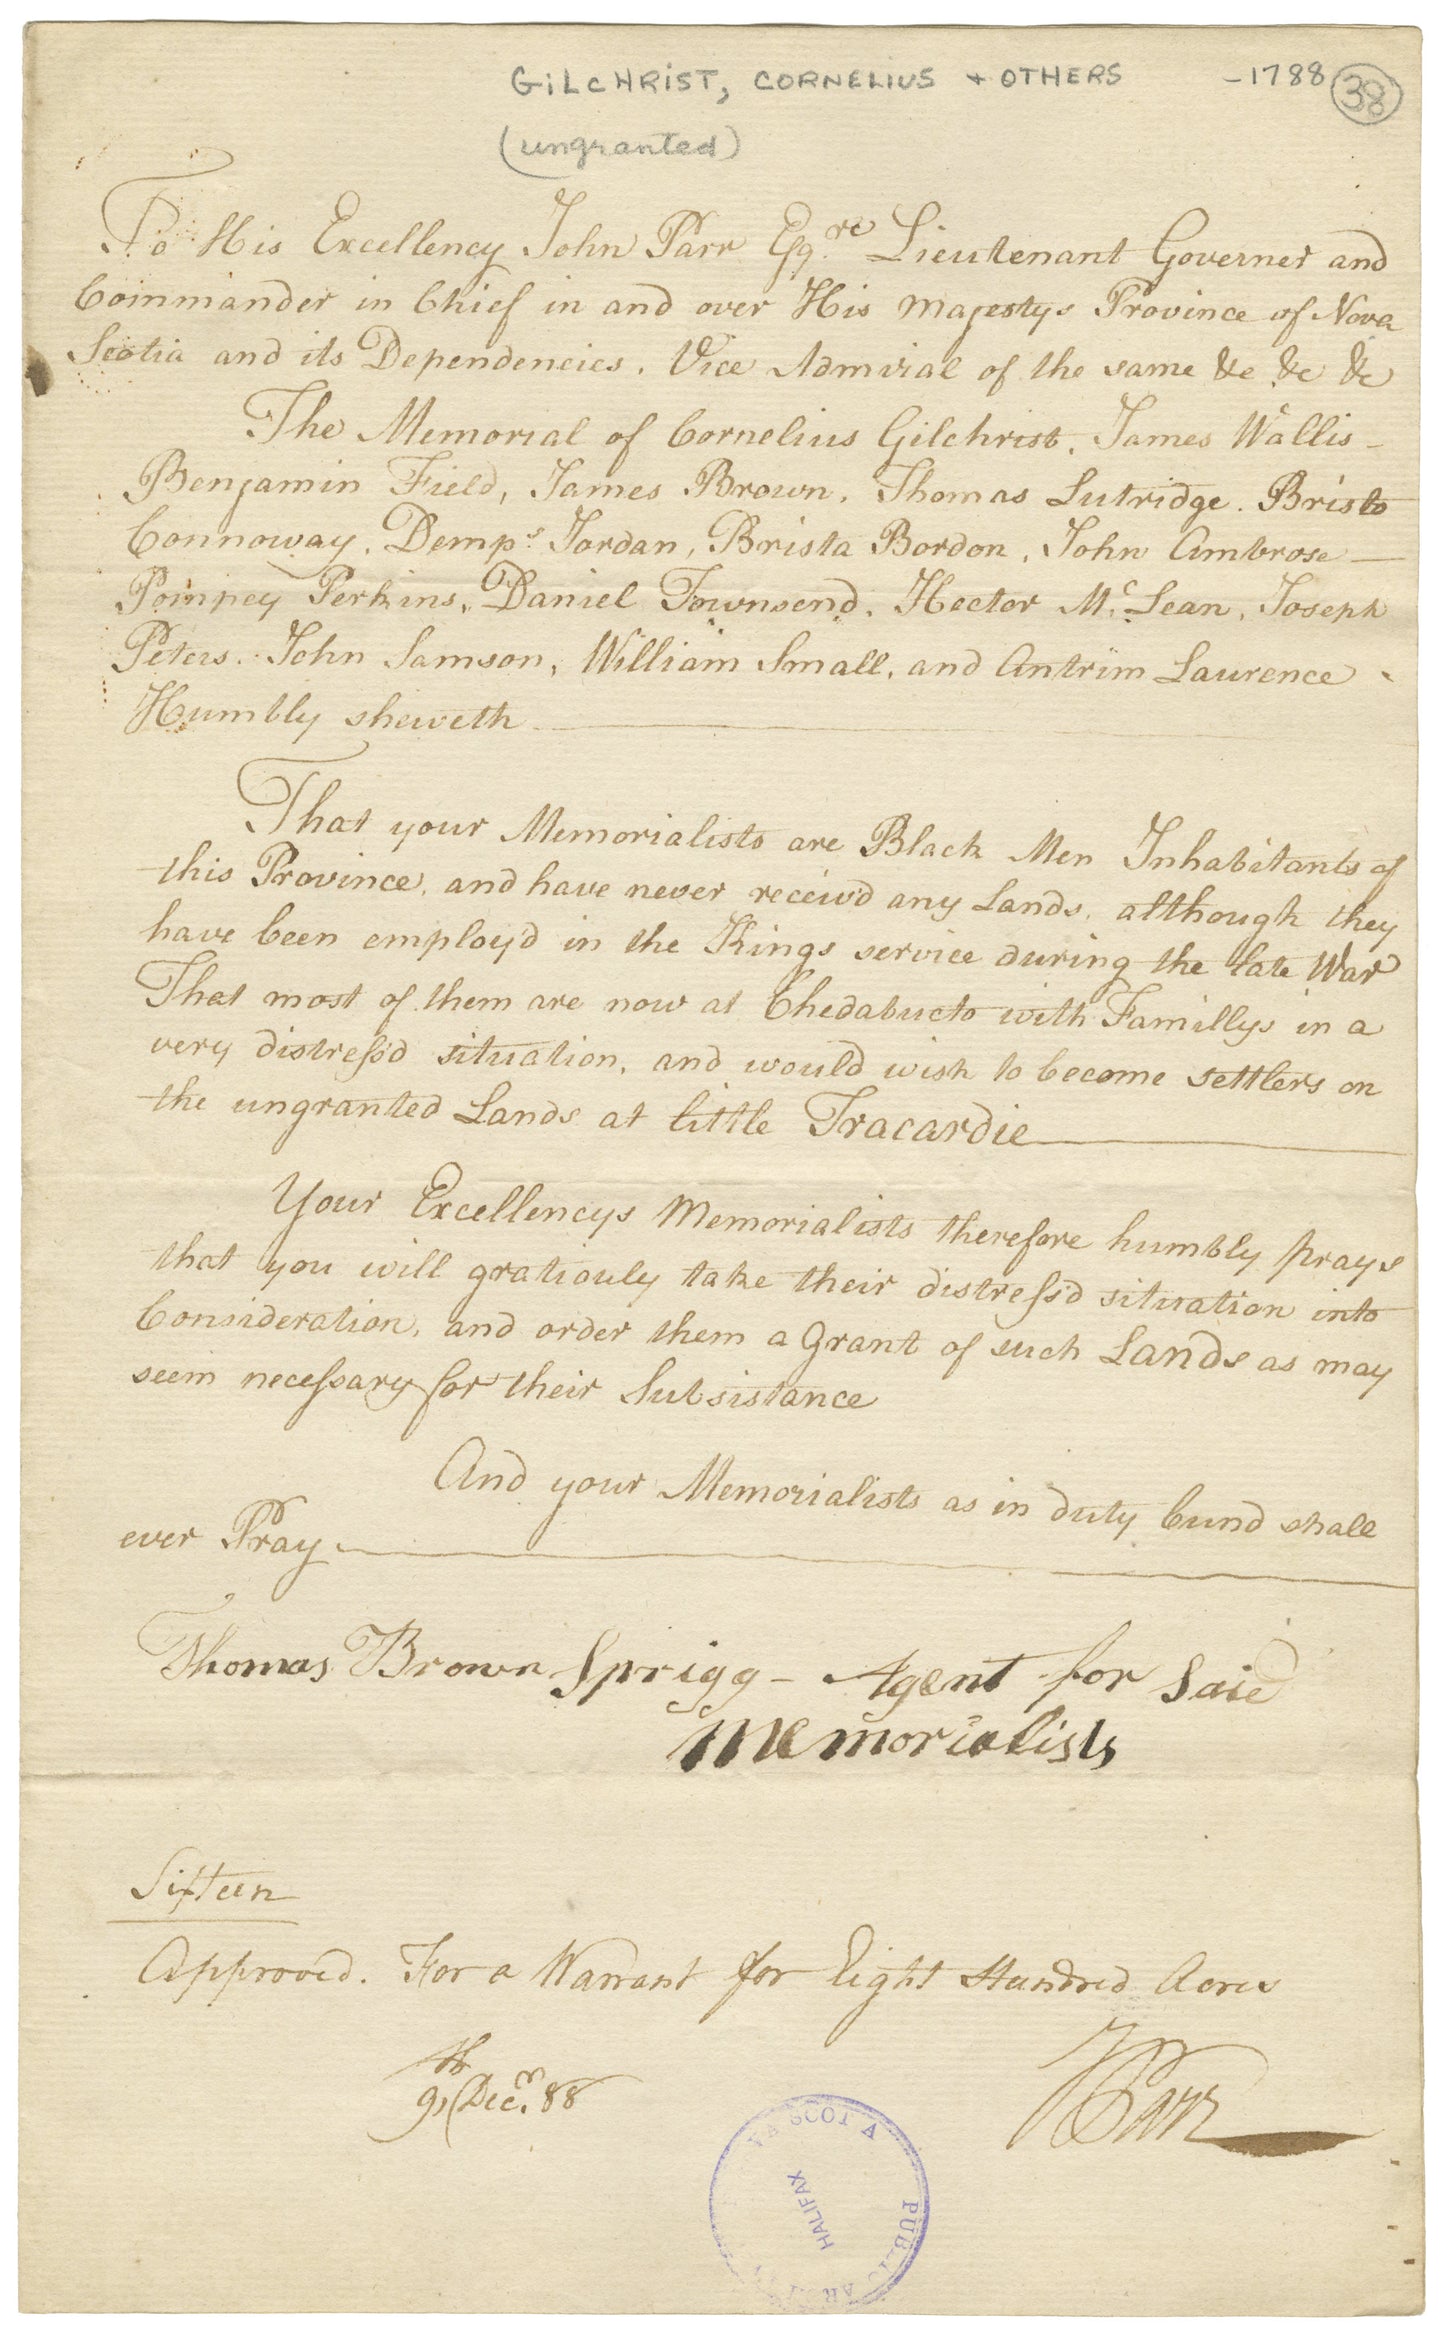 GILCHRIST, CORNELIUS + OTHERS -1788 38
(ungranted)
To His Excellency John Parr Esq.re Lieutenant Governer and
Commander in Chief in and over His Majestys Province of Nova
Scotia and its Dependencies, Vice Admiral of the same &c &c &c
The Memorial of Cornelius Gilchrist, James Wallis -
Benjamin Field, James Brown, Thomas Lutridge, Bristo
Connoway, Demps. Jordan, Brista Bordon, John Ambrose —
Pompey Perkins, Daniel Townsend, Hector Mc. Lean, Joseph
Peters, John Samson, William Small, and Antrim Laurence
Humbly sheweth —
That your Memorialists are Black Men Inhabitants of
this Province, and have never receiv'd any Lands, although they
have been employ'd in the Kings service during the late War
That most of them are now at Chedabucto with Famillys in a
very distress'd situation, and would wish to become settlers on
the ungranted Lands at little Tracardie —
Your Excellencys Memorialists therefore humbly prays
that you will gratiouly take their distress'd situation into
Consideration, and order them a Grant of such Lands as may
seem necessary for their Subsistance
And your Memorialists as in duty bund shall
ever Pray —
Thomas Brown Sprigg - Agent for Said
Memorialists
Sixteen
Approved. For a Warrant for Eight Hundred Acres
9th Decr. 88
J Parr
VA SCOTIA
HALIFAX
PUBLIC AR